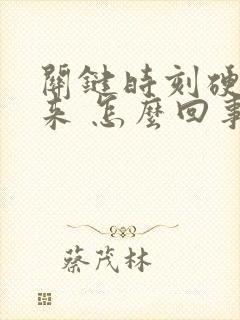 關鍵時刻硬
來 怎麼回事
蔡茂林